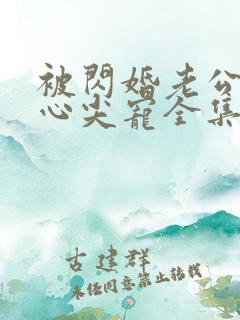 被閃婚老公
心尖寵全集
古建群
未经同意禁止转载